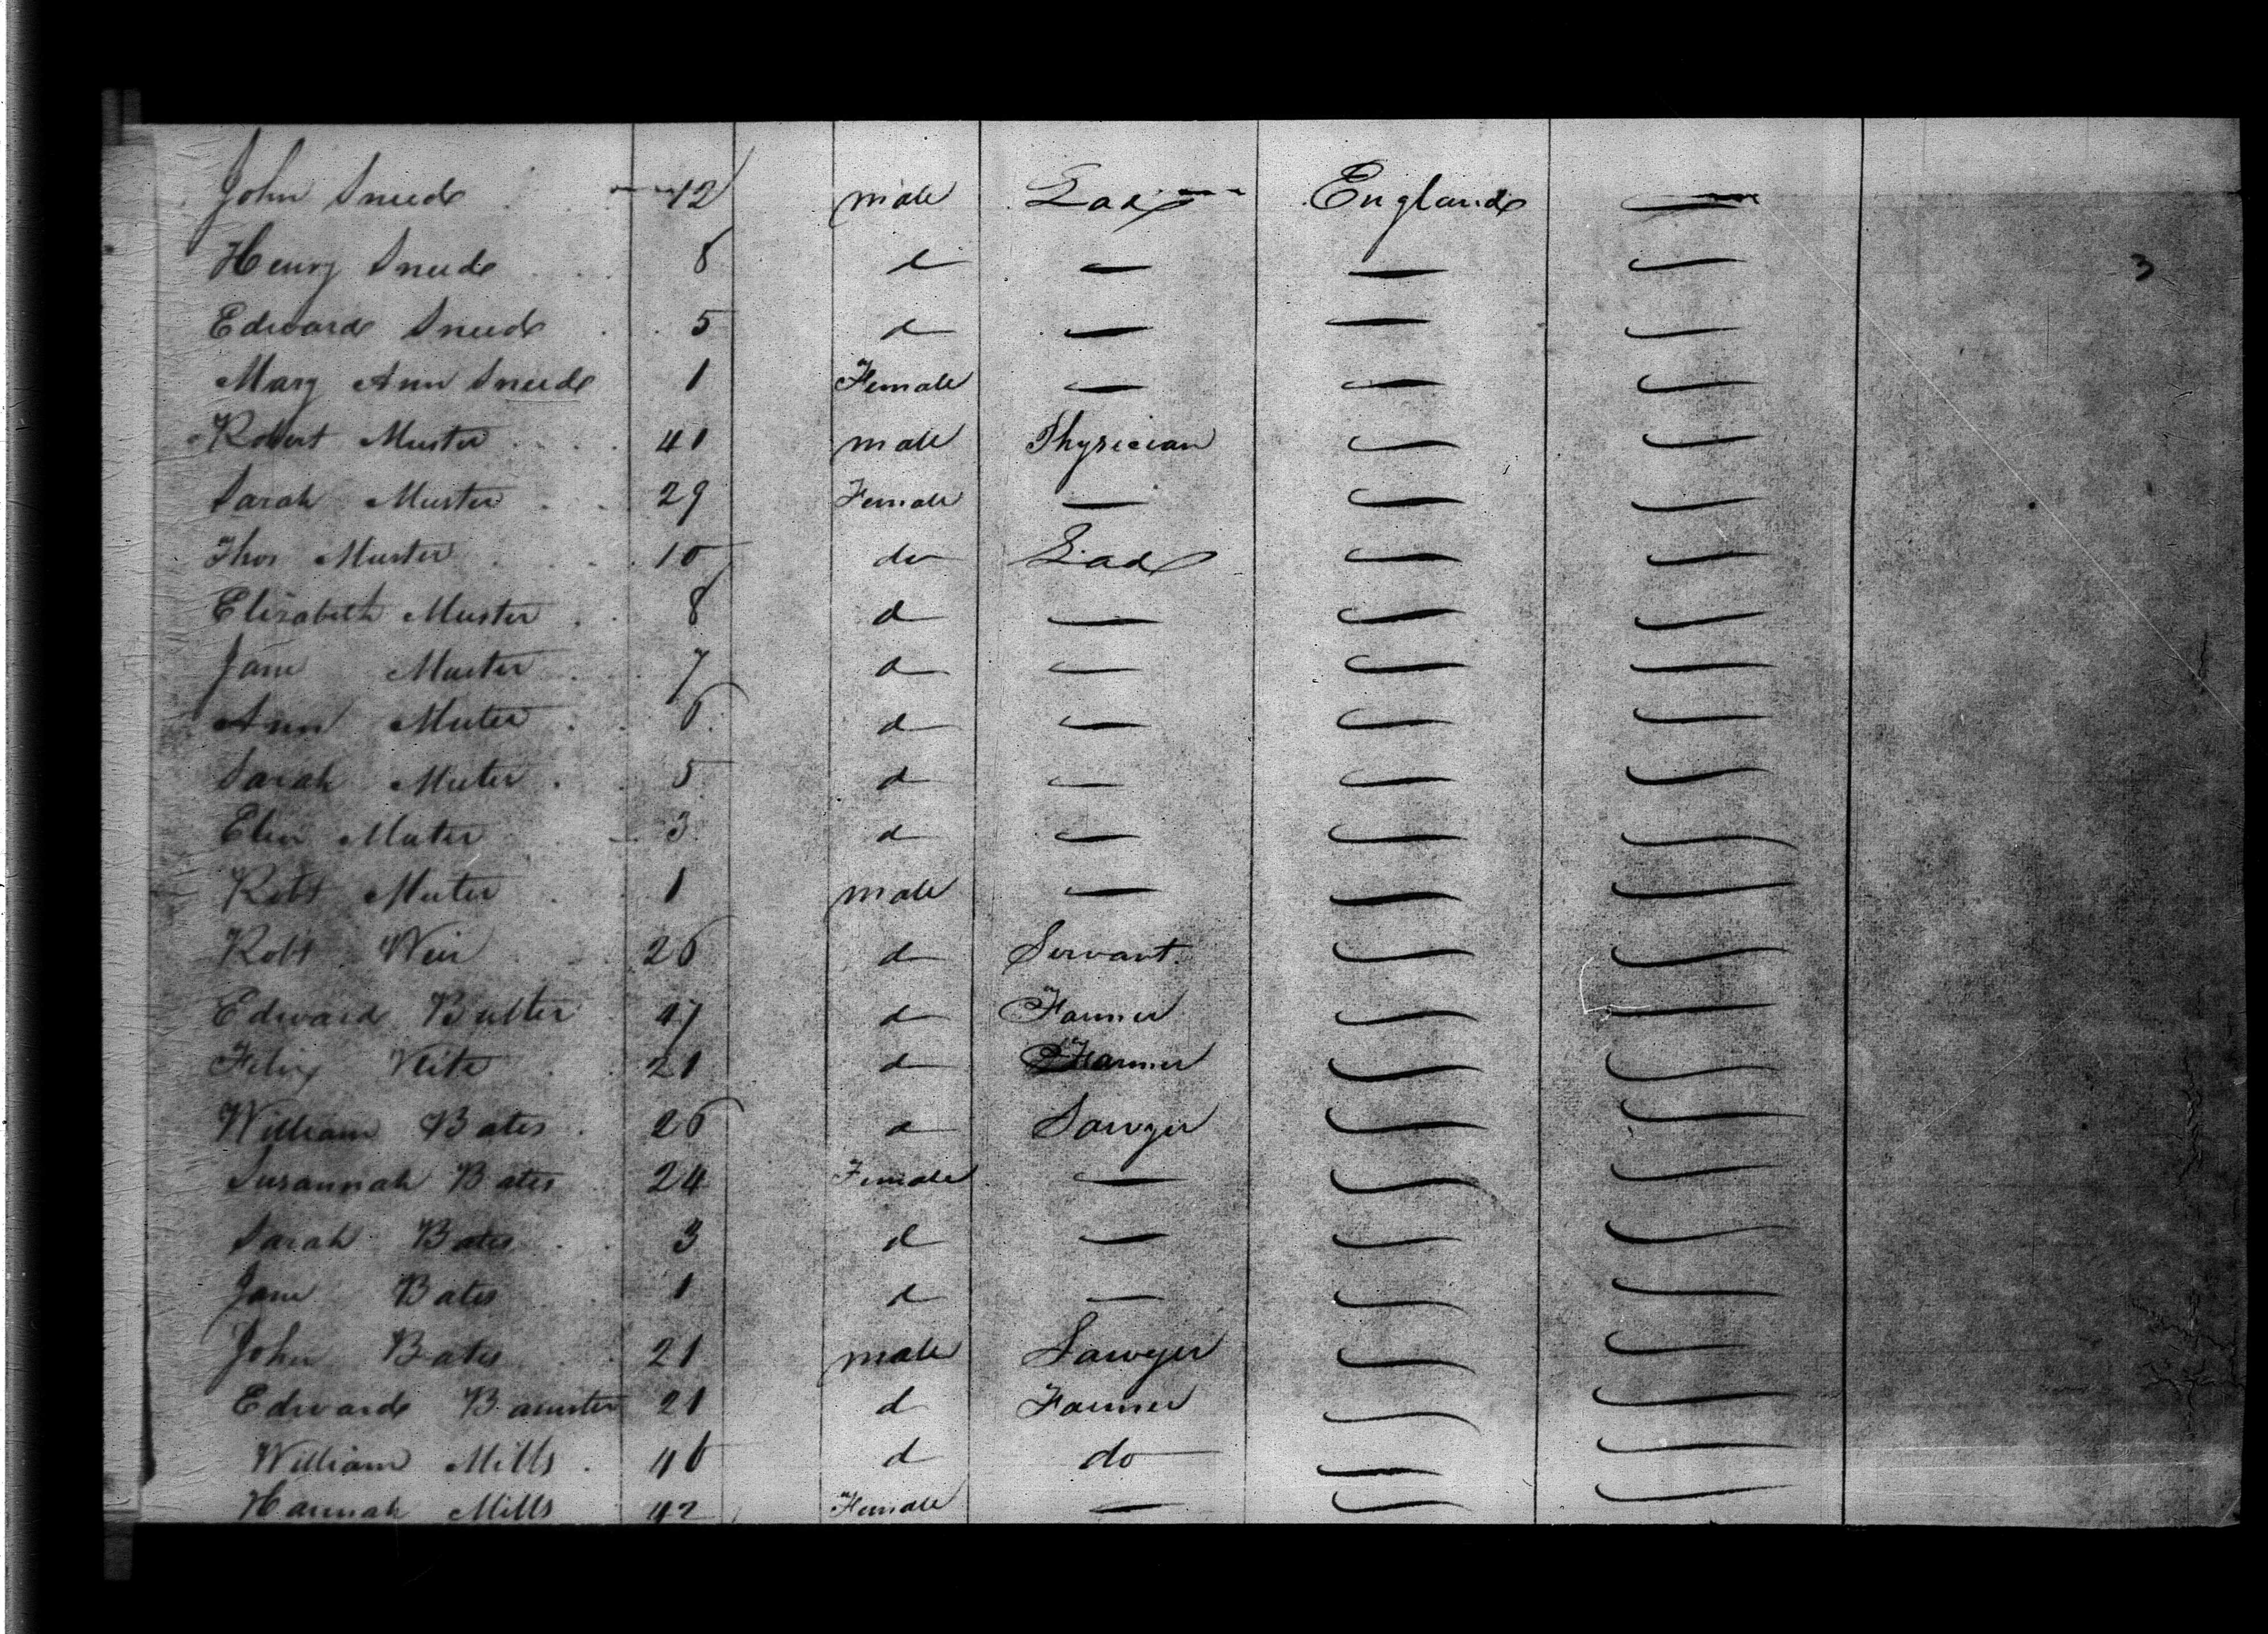 John Sneede 12 male Lad England —
Henry Sneede 8 d — — —
Edward Sneede 5 d — — —
Mary Ann Sneede 1 Female — — —
Robert Muster 41 male Physician — —
Sarah Muster 29 Female — — —
Thos Muster 10 do Lad — —
Elizabeth Muster 8 d — — —
Jane Muster 7 d — — —
Ann Muster 6 d — — —
Sarah Muster 5 d — — —
Ellen Muster 3 d — — —
Robt Muster 1 male — — —
Robt Weir 26 d Servant — —
Edward Butter 47 d Farmer — —
Felix 21 d Farmer — —
William Bates 26 d Sawyer — —
Susannah Bates 24 Female — — —
Sarah Bates 3 d — — —
Jane Bates 1 d — — —
John Bates 21 male Sawyer — —
Edward Banister 21 d Farmer — —
William Mills 46 d do — —
Hannah Mills 42 Female — — —
3